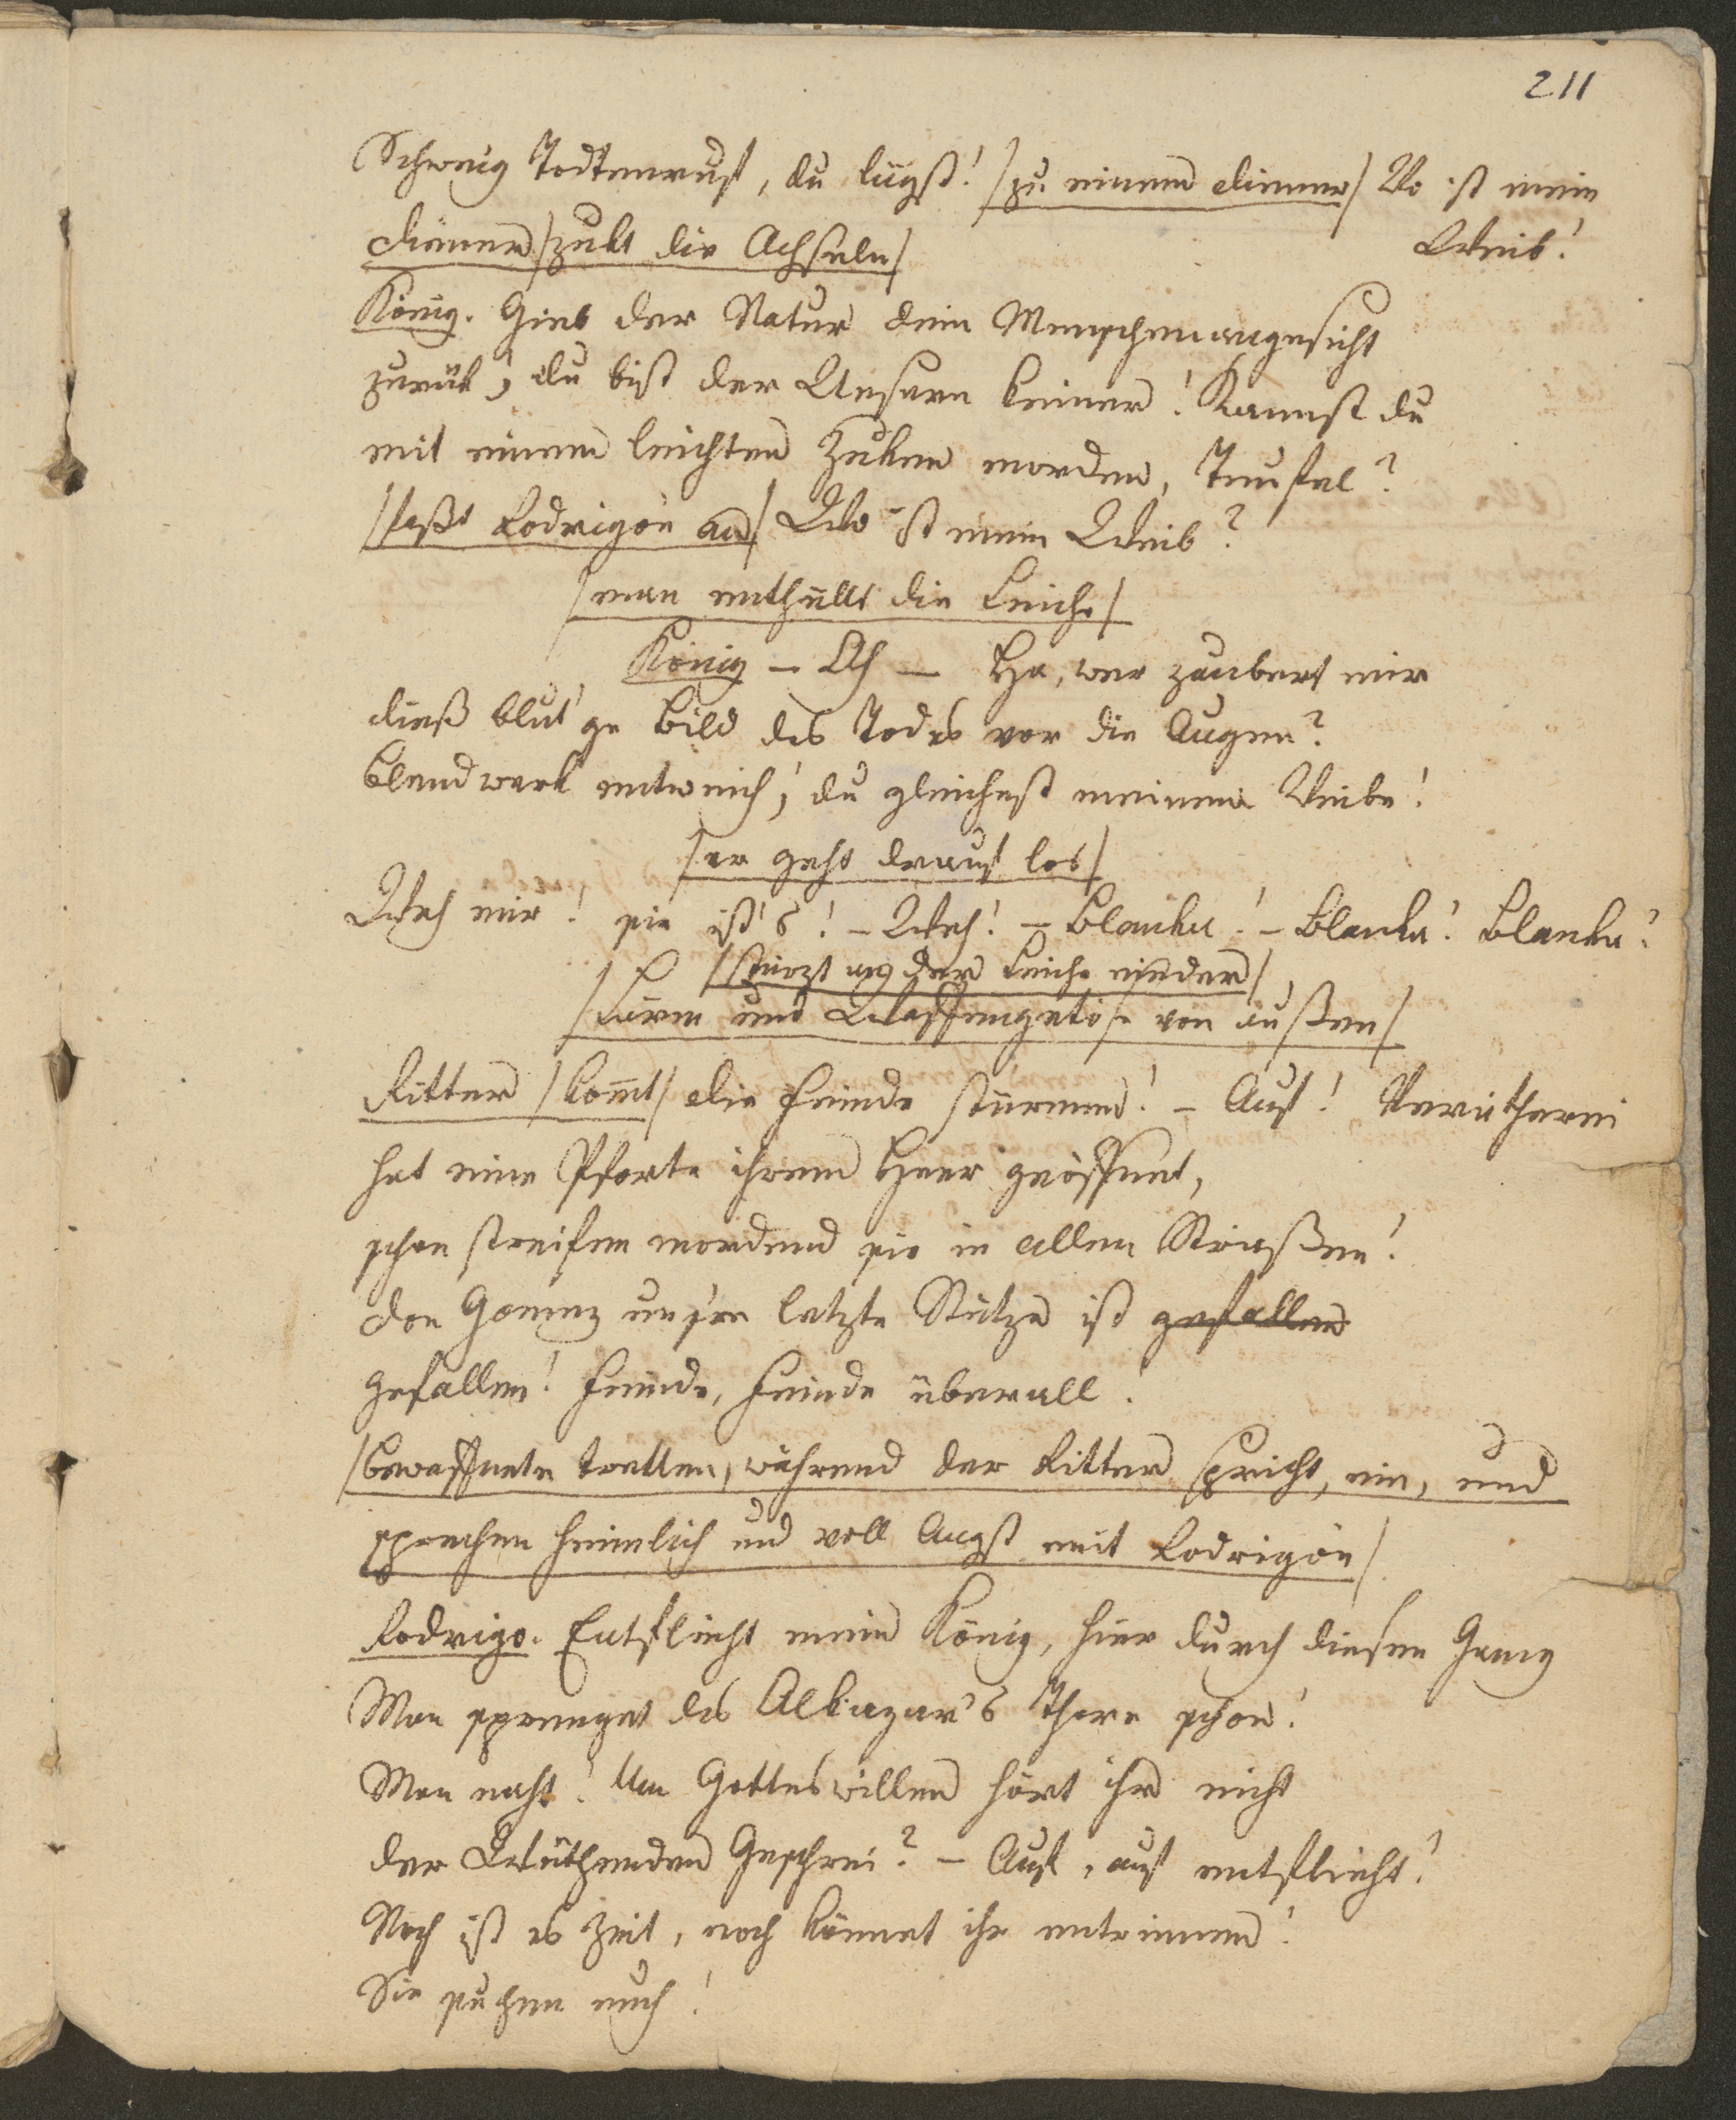 211
Schweig Todtenruf, du lügst! /zu einem Diener/ Wo ist mein
Weib!
Diener /zukt die Achseln/
König. Gieb der Natur dein Menschenangesicht
zurük, du bist der Unsern keiner! Kannst du
mit einem leichten Zuken morden, Teufel?
/faßt Rodrigon an/ Wo ist mein Weib?
/man enthüllt die Leiche/
König – Ah – Ha, wer zaubert mir
dieß blut'ge Bild des Todes vor die Augen?
Blendwerk entweich', du gleichest meinem Weibe!
/er geht drauf los/
Weh mir! sie ist's! – Weh! – Blanka! – Blanka! Blanka!
/stürzt an der Leiche nieder/
/Lärm und Waffengetöse von außen/
Ritter /kom̄t/ Die Feinde stürmen! – Auf! Verrätherei
hat eine Pforte ihrem Heer geöffnet,
schon streifen mordend sie in allen Straßen!
Don Gomez unsre letzte Stütze ist gefallen
gefallen! Feinde, Feinde überall!
/Bewaffnete tretten, während der Ritter spricht, ein, und
sprechen heimlich und voll Angst mit Rodrigon/
Rodrigo. Entflieht mein König, hier durch diesen Gang
Man sprenget des Alkazar's Thore schon!
Man naht! Um Gotteswillen hört ihr nicht
der Wüthenden Geschrei? – Auf, auf entflieht!
Noch ist es Zeit, noch könnet ihr entrinnen!
Sie suchen euch!